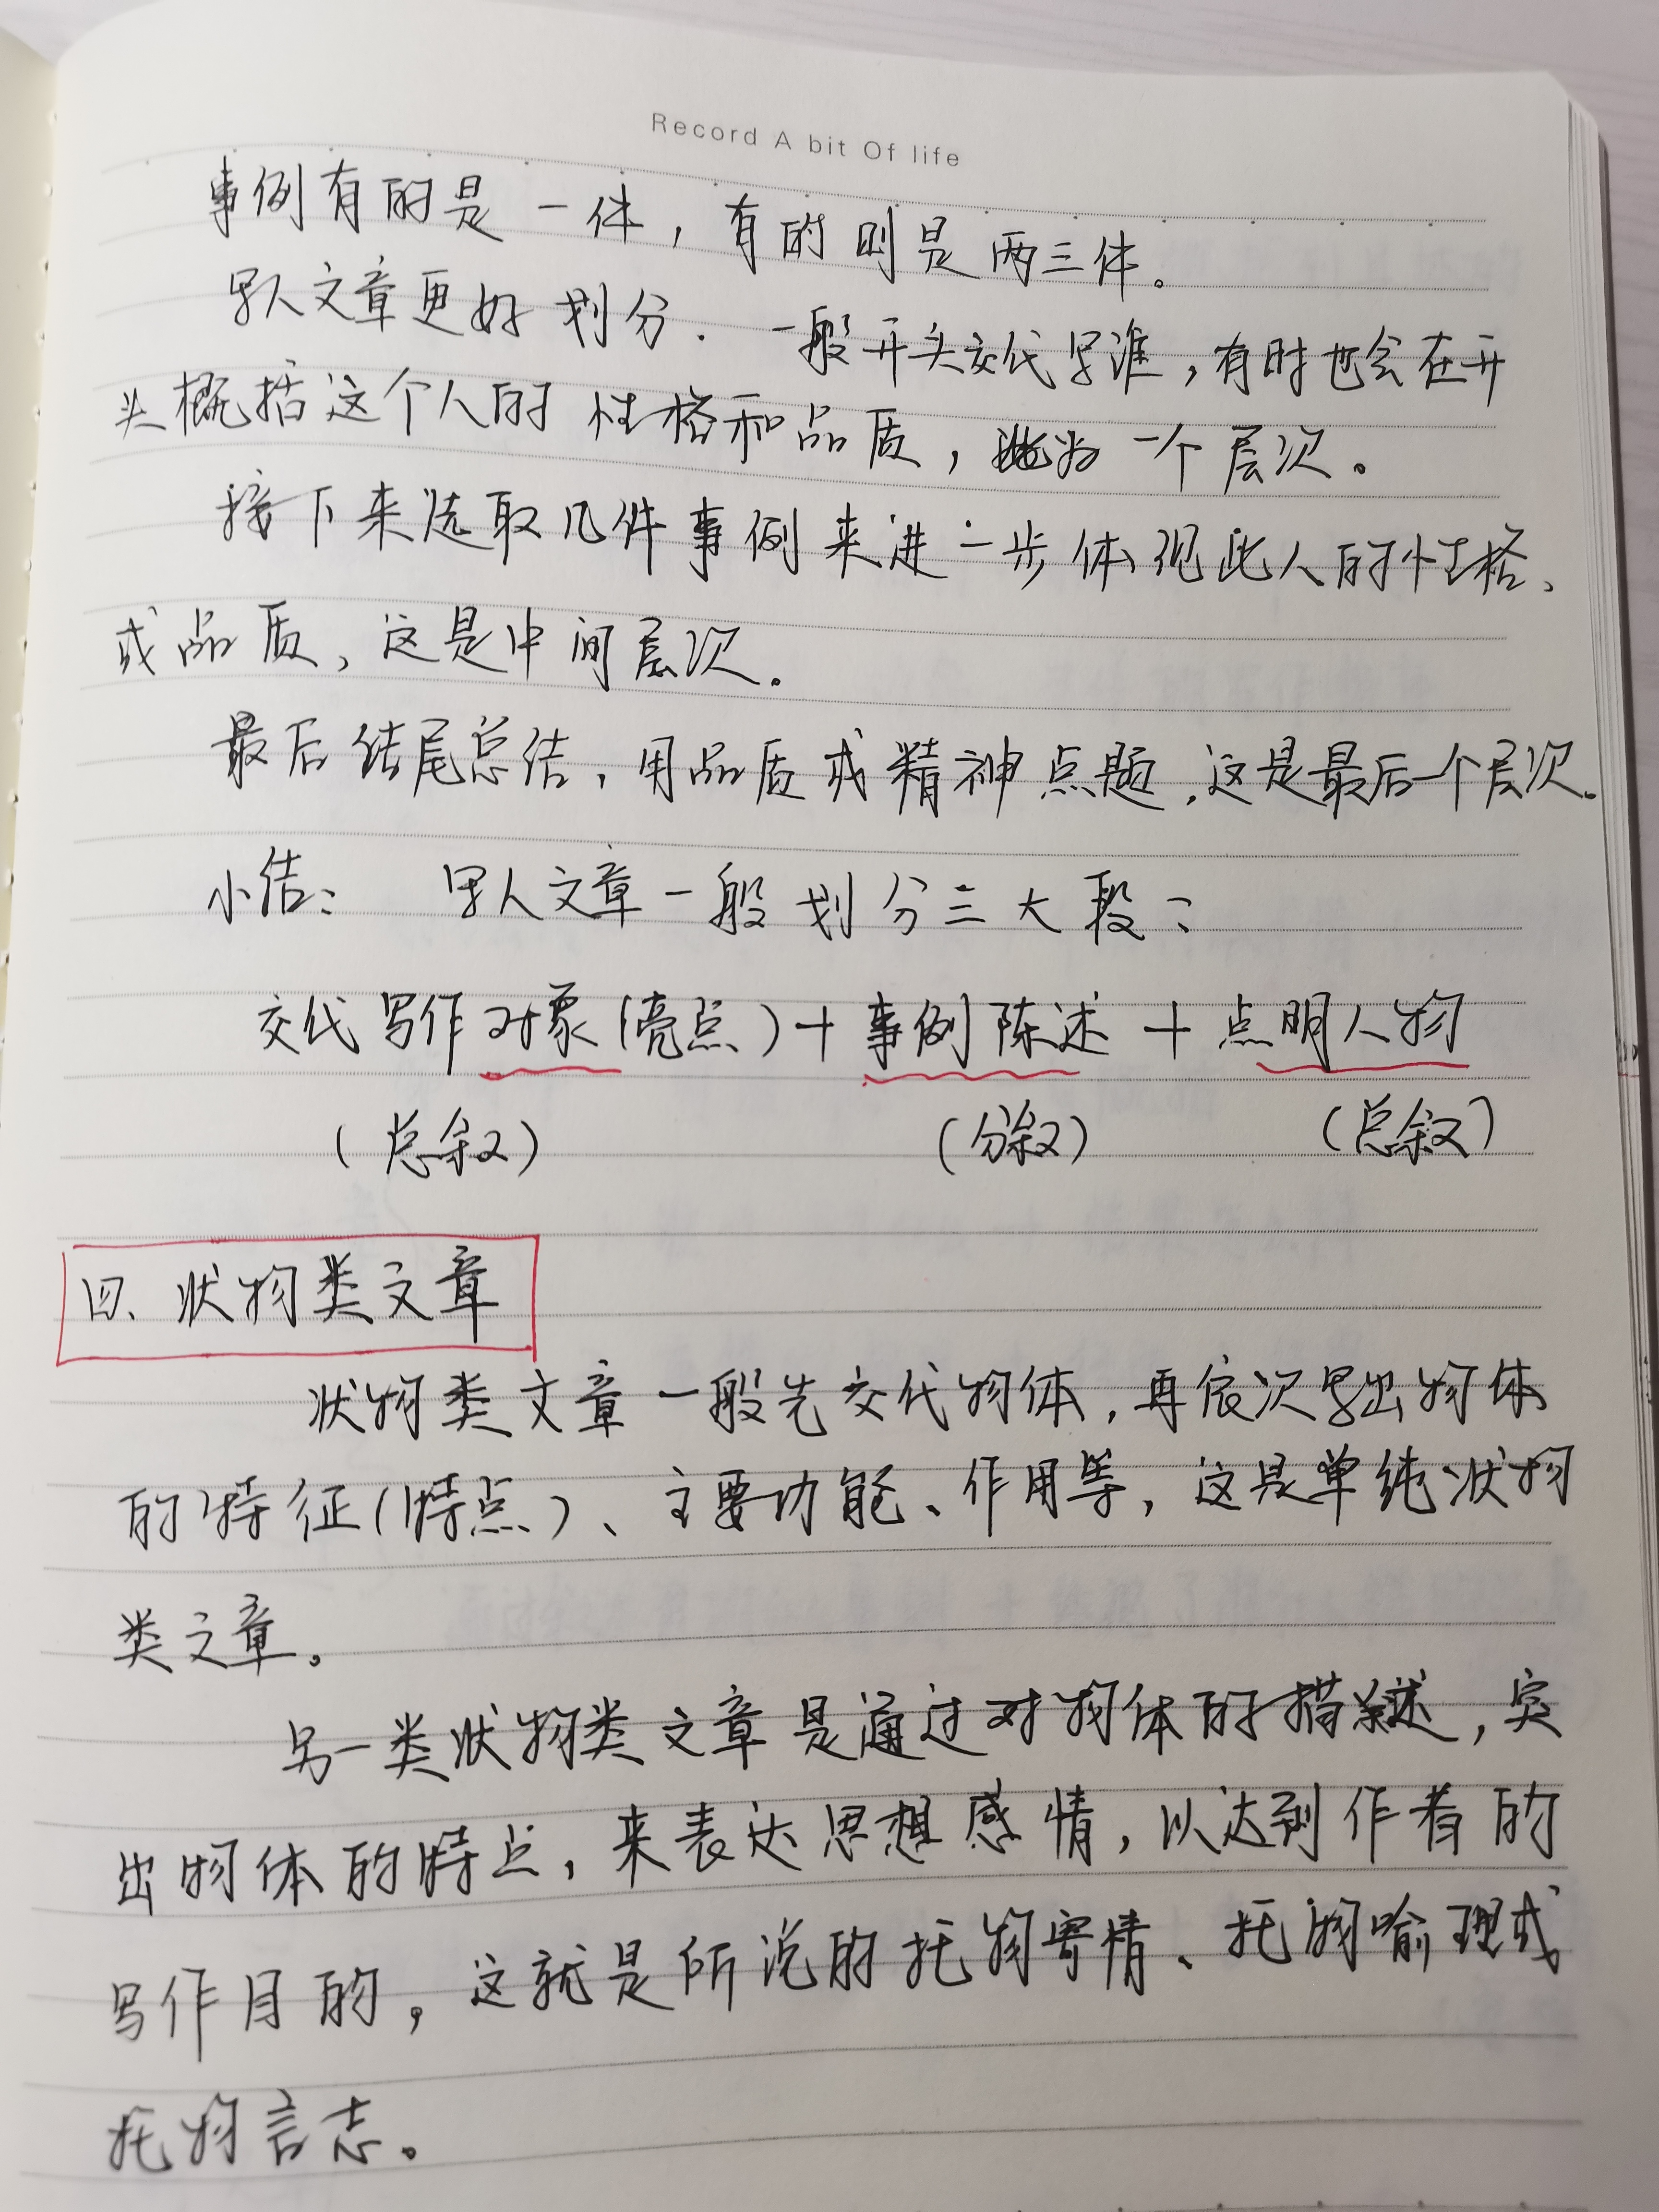 Record A bit Of life
事例有的是一体，有的则是两三体。
写人文章更好划分．一般开头交代写谁，有时也会在开
头概括这个人的性格和品质，此为一个层次。
接下来选取几件事例来进一步体现此人的性格、
或品质，这是中间层次。
最后结尾总结，用品质或精神点题，这是最后一个层次。
小结：写人文章一般划分三大段：
交代写作对象（亮点）＋事例陈述＋点明人物
（总叙）（分叙）（总叙）
四、状物类文章
状物类文章一般先交代物体，再依次写出物体
的特征（特点）、主要功能、作用等，这是单纯状物
类文章。
另一类状物类文章是通过对物体的描述，突
出物体的特点，来表达思想感情，以达到作者的
写作目的，这就是所说的托物寄情、托物喻理或
托物言志。